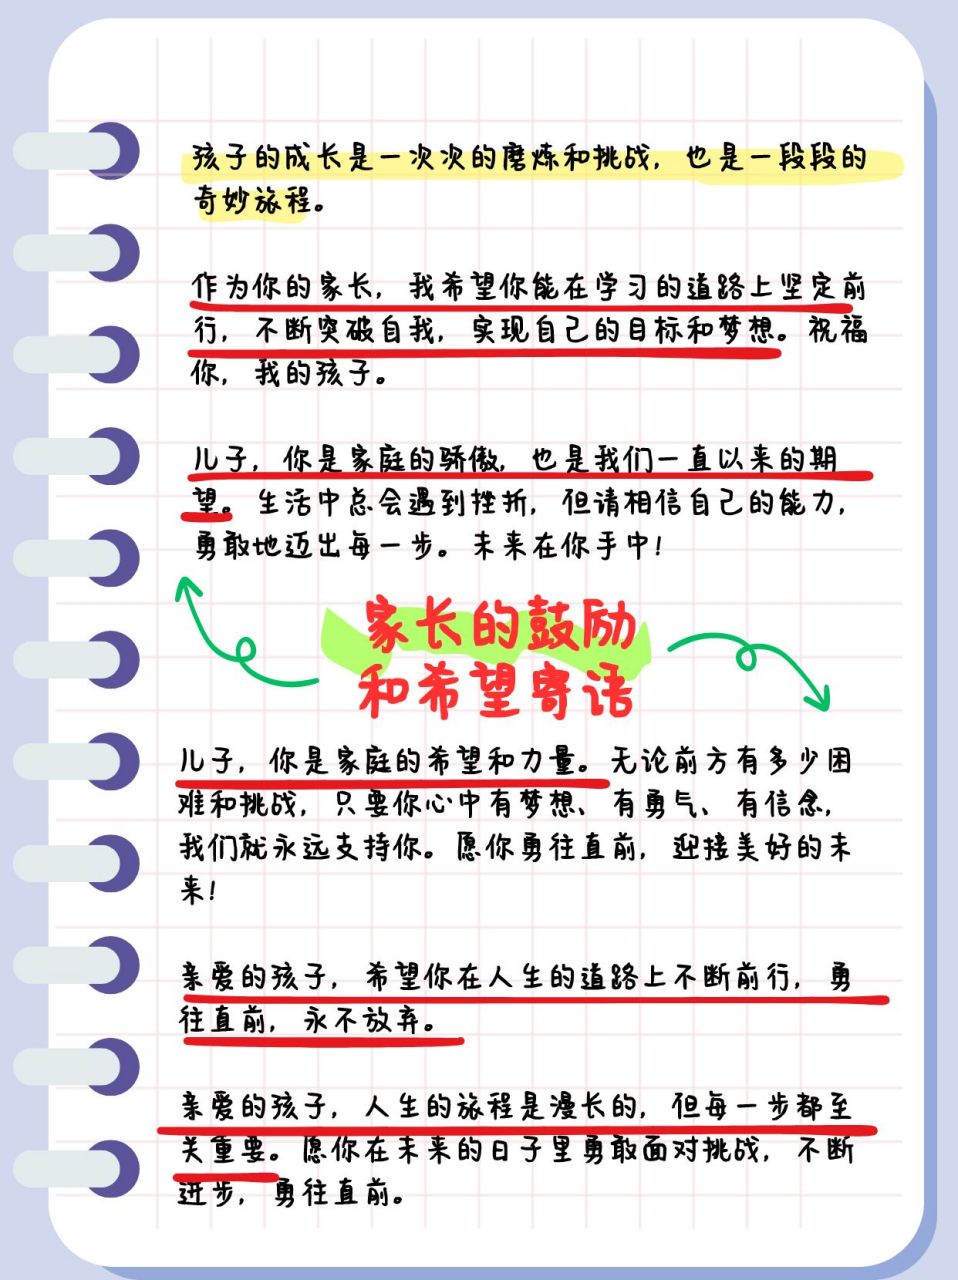 孩子的成长是一次次的磨炼和挑战，也是一段段的
奇妙旅程。
作为你的家长，我希望你能在学习的道路上坚定前
行，不断突破自我，实现自己的目标和梦想。祝福
你，我的孩子。
儿子，你是家庭的骄傲，也是我们一直以来的期
望。生活中总会遇到挫折，但请相信自己的能力，
勇敢地迈出每一步。未来在你手中！
家长的鼓励
和希望寄语
儿子，你是家庭的希望和力量。无论前方有多少困
难和挑战，只要你心中有梦想、有勇气、有信念，
我们就永远支持你。愿你勇往直前，迎接美好的未
来！
亲爱的孩子，希望你在人生的道路上不断前行，勇
往直前，永不放弃。
亲爱的孩子，人生的旅程是漫长的，但每一步都至
关重要。愿你在未来的日子里勇敢面对挑战，不断
进步，勇往直前。